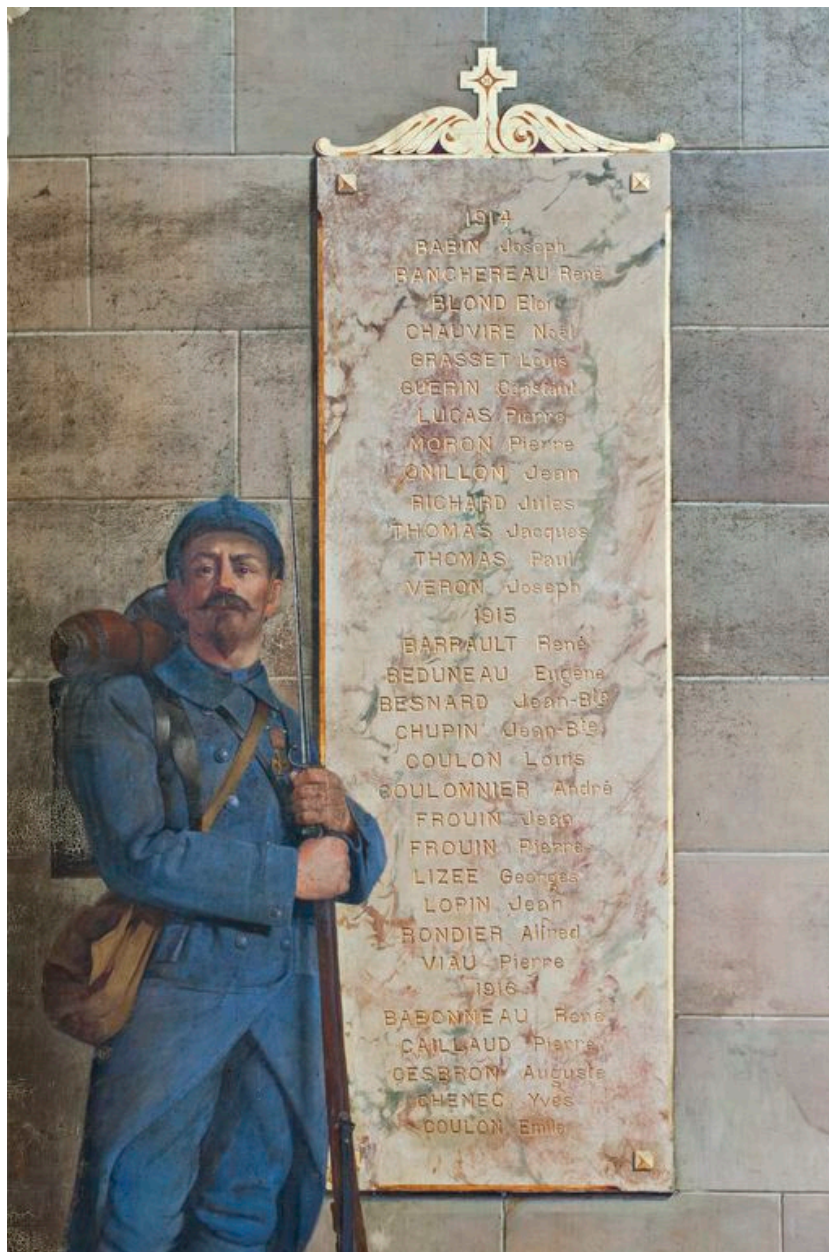 1914
BABIN Joseph
BANCHEREAU René
BLOND
CHAUVIRE Noël
GRASSET Louis
GUERIN Constant
LUCAS Pierre
MORON Pierre
ONILLON Jean
RICHARD Jules
THOMAS Jacques
THOMAS Paul
VERON Joseph
1915
BARRAULT René
BEDUNEAU Eugène
BESNARD Jean-Bte
CHUPIN Jean-Bte
COULON Louis
COULOMNIER André
FROUIN Jean
FROUIN Pierre
LIZEE Georges
LOPIN Jean
RONDIER Alfred
VIAU Pierre
1916
BABONNEAU René
CAILLAUD Pierre
CESBRON Auguste
CHENEC Yves
COULON Emile